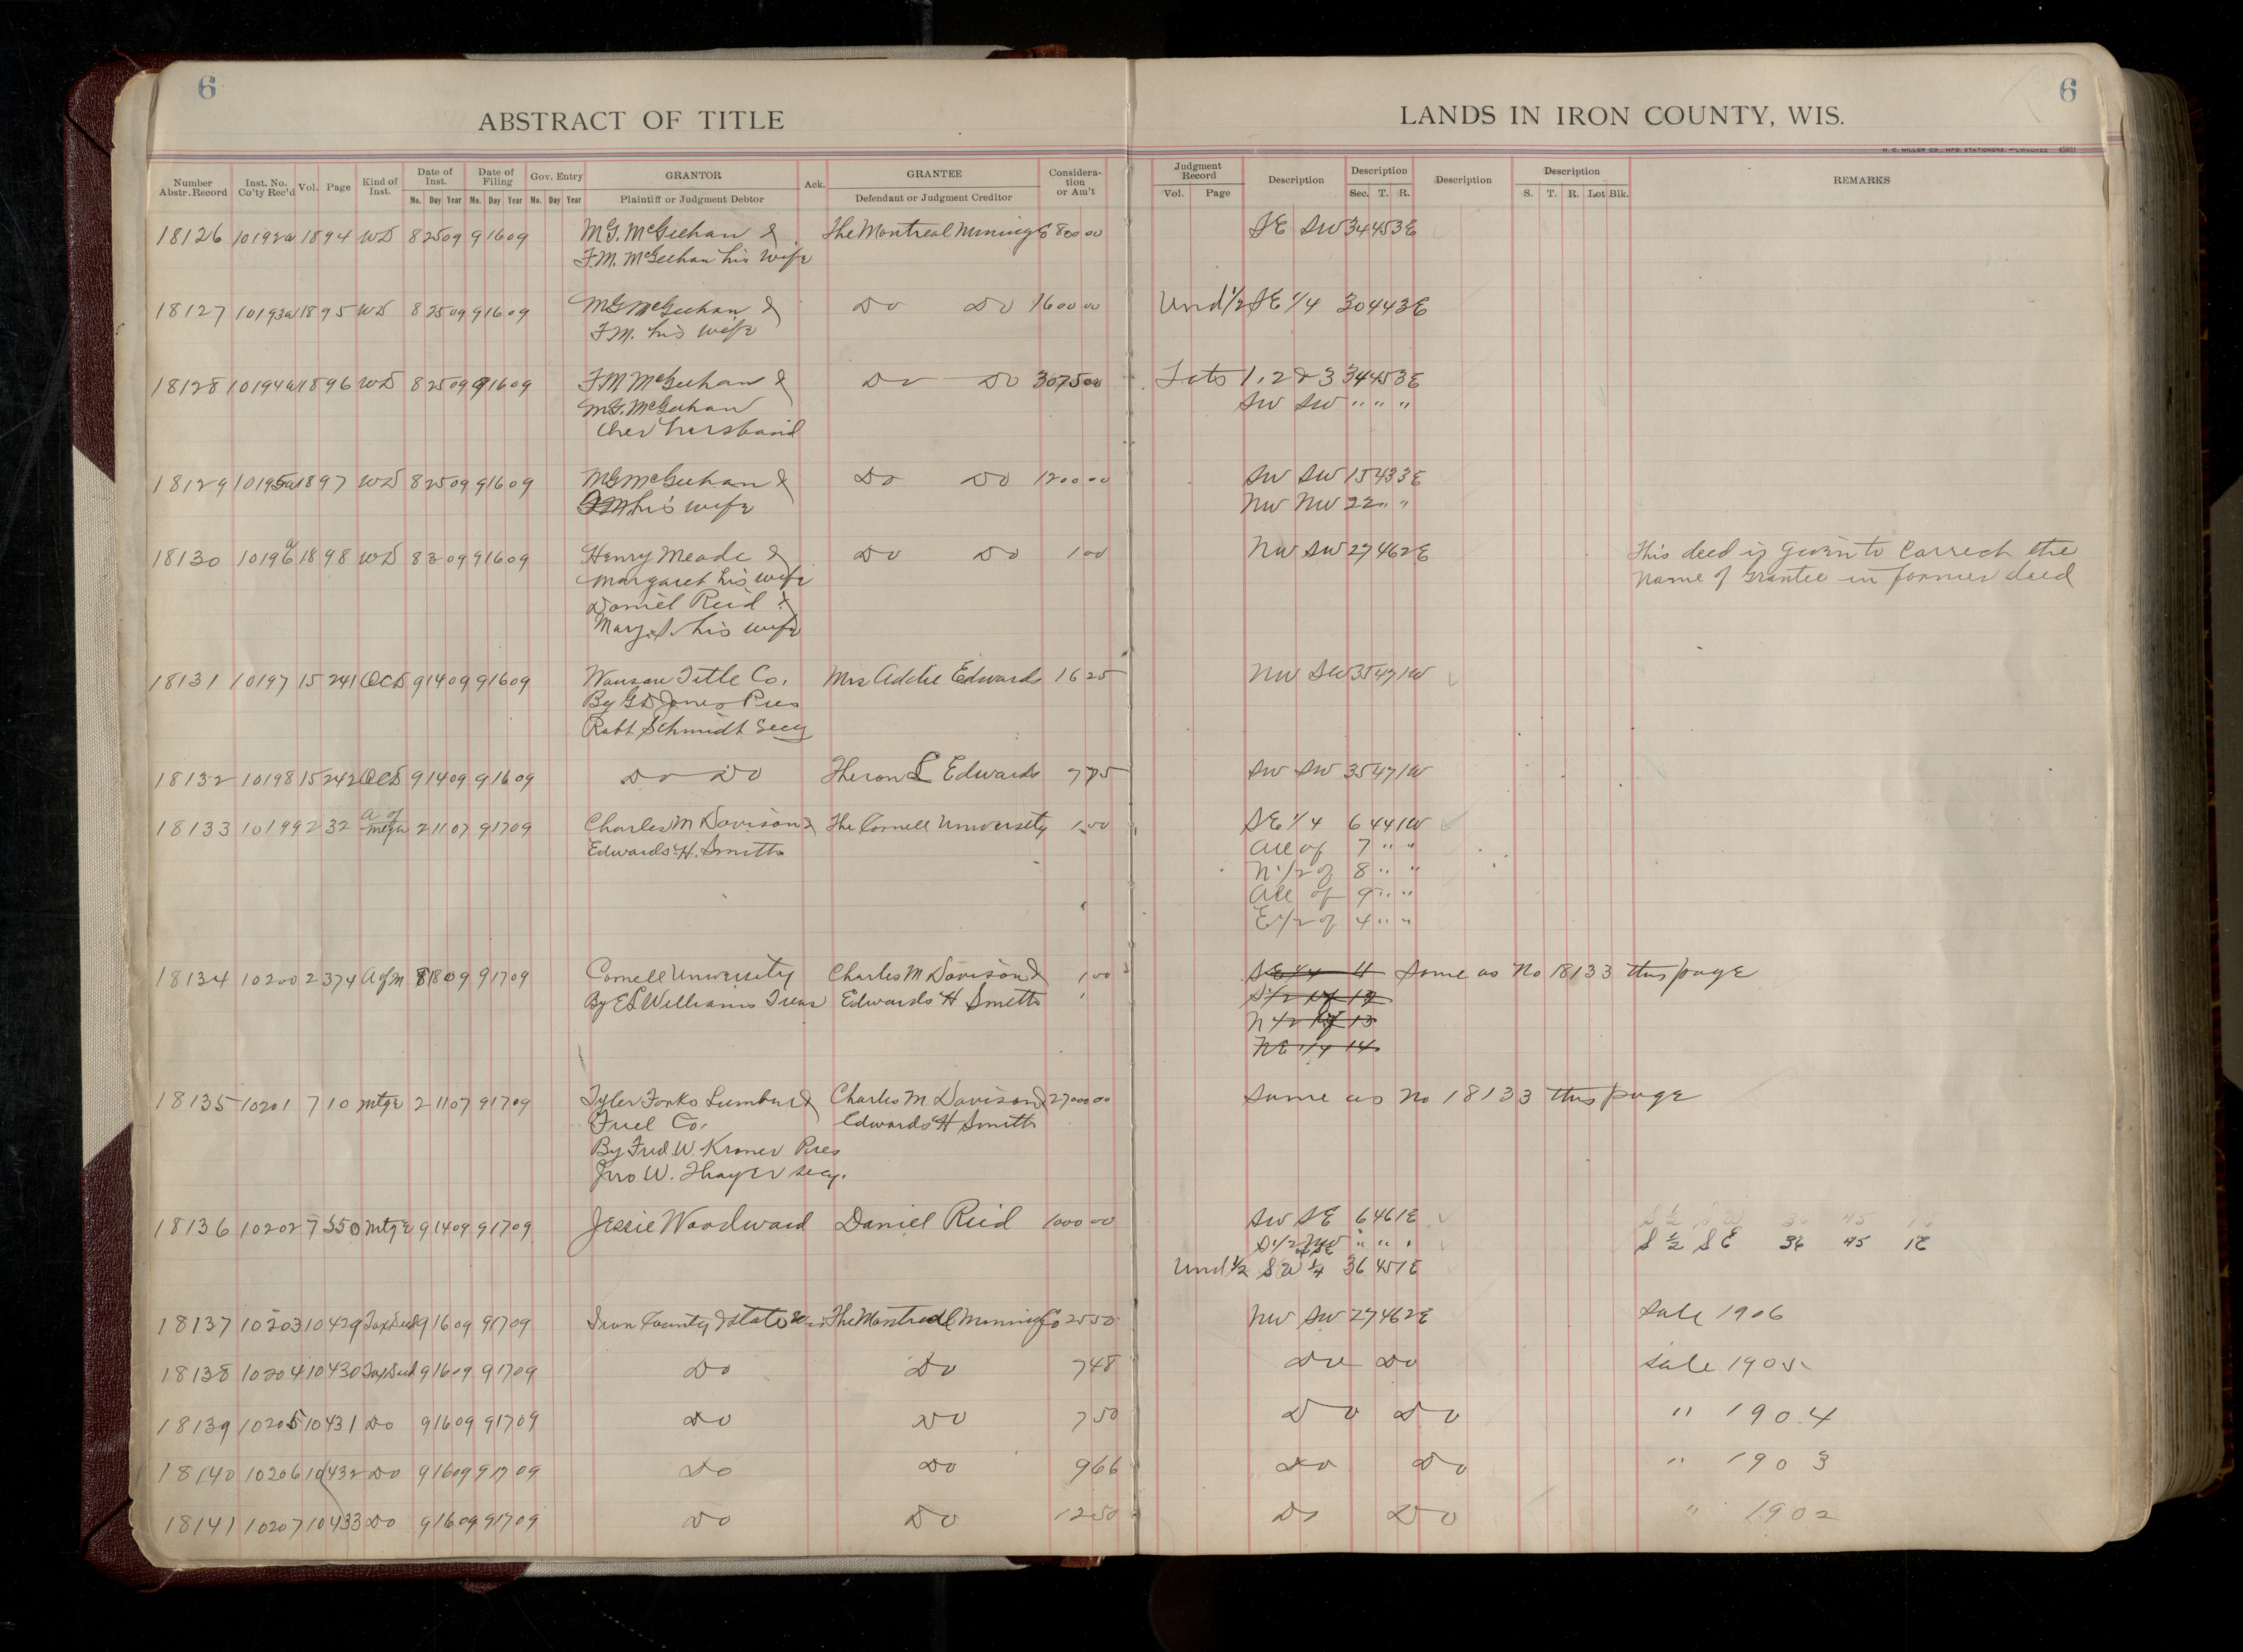 6
6
ABSTRACT OF TITLE
LANDS IN IRON COUNTY, WIS.
H. C. MILLER CO., MFG. STATIONERS, MILWAUKEE
Number Abstr. Record Inst. No. Co'ty Rec'd Vol. Page Kind of Inst. Date of Inst. Mo. Day Year Date of Filing Mo. Day Year Gov. Entry Mo. Day Year GRANTOR Plaintiff or Judgment Debtor Ack. GRANTEE Defendant or Judgment Creditor Considera- tion or Am't Judgment Record Vol. Page Description Description Sec. T. R. Description Description S. T. R. Lot Blk. REMARKS
18126 10192a 18 94 WD 8 25 09 9 16 09 M.G. McGeehan & The Montreal Mining Co 800 00 SE SW 34 45 3E
F.M. McGeehan his wife
18127 10193a 18 95 WD 8 25 09 9 16 09 M G McGeehan & Do Do 1600 00 Und 1/2 SE 1/4 30 44 3E
F.M. his wife
18128 10194a 18 96 WD 8 25 09 9 16 09 F.M McGeehan & Do Do 3075 00 Lots 1, 2 & 3 34 45 3E
M.G. McGeehan SW SW " " "
her husband
18129 10195a 18 97 WD 8 25 09 9 16 09 M G McGeehan & Do Do 1200 00 SW SW 15 43 3E
FM his wife NW NW 22 " "
18130 10196a 18 98 WD 8 3 09 9 16 09 Henry Meade & Do Do 1 00 NW SW 27 46 2E This deed is given to Correct the
Margaret his wife Name of Grantee in former deed
Daniel Reid &
Mary his wife
18131 10197 15 241 QCD 9 14 09 9 16 09 Wausau Title Co. Mrs Addie Edwards 16 25 NW SW 35 47 1W
By G D Jones Pres
Robt Schmidt Secy
18132 10198 15 242 QCD 9 14 09 9 16 09 Do Do Theron L Edwards 7 75 SW SW 35 47 1W
18133 10199 2 32 A of mtge 2 11 07 9 17 09 Charles M Davison & The Cornell University 1.00 SE 1/4 6 44 1W
Edwards H. Smith All of 7 " "
N 1/2 of 8 " "
All of 9 " "
E 1/2 of 4 " "
18134 10200 2 374 A of M 8 18 09 9 17 09 Cornell University Charles M Davison & 1 00 SE 1/4 11 Same as No 18133 this page
By E L Williams Treas Edwards H Smith S 1/2 of 12
N 1/2 of 13
NE 1/4 14
18135 10201 7 10 mtge 2 11 07 9 17 09 Tyler Forks Lumber & Charles M Davison & 27000 00 Same as No 18133 this page
Fuel Co. Edwards H Smith
By Fred W. Kroner Pres
Jno W. Thayer secy.
18136 10202 7 550 mtge 9 14 09 9 17 09 Jessie Woodward Daniel Reid 1000 00 SW SE 6 46 1E
S 1/2 " " " S 1/2 SE 36 45 1E
Und 1/2 SW 1/4 36 45 1E
18137 10203 10 429 Tax Deed 9 16 09 9 17 09 Iron County & State Wis The Montreal Mining Co 25 50 NW SW 27 46 2E Sale 1906
18138 10204 10 430 Tax Deed 9 16 09 9 17 09 Do Do 7 48 Do Do Sale 1905
18139 10205 10 431 Do 9 16 09 9 17 09 Do Do 7 50 Do Do " 1904
18140 10206 10 432 Do 9 16 09 9 17 09 Do Do 9 66 Do Do " 1903
18141 10207 10 433 Do 9 16 09 9 17 09 Do Do 12 50 Do Do " 1902